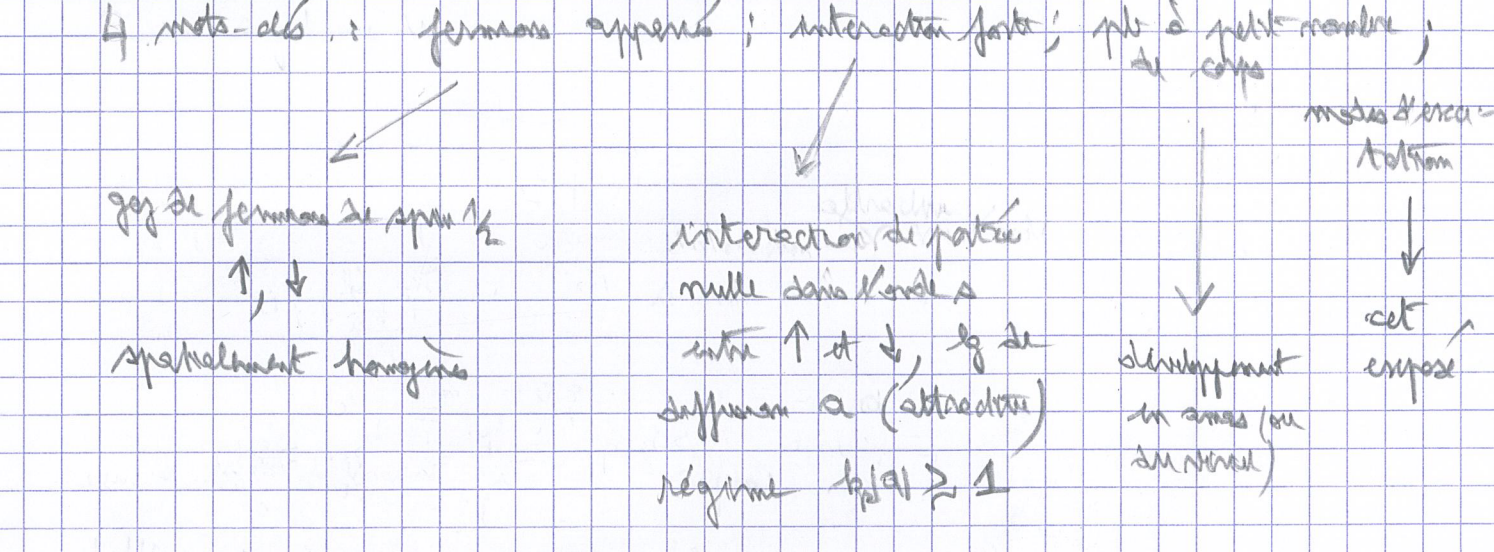 4 mots-clés : fermions appariés ; interaction forte ; pb à petit nombre ;
de corps
modes d'exci-
tation
gaz de fermions de spin 1/2
↑, ↓
spatialement homogène
interaction de portée
nulle dans l'onde s
entre ↑ et ↓, lg de
diffusion a (attractive)
régime kF|a| ≳ 1
développement
en amas (ou
du viriel)
cet
exposé